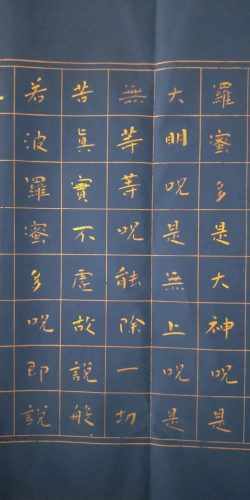 羅蜜多是大神呪是
大明呪是無上呪是
無等等呪能除一切
苦真實不虛故說般
若波羅蜜多呪即說